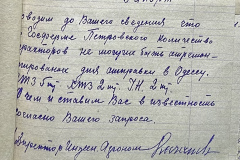 водим до Вашего сведения что
Госферме Петровского количество
тракторов не могущие быть отремон-
тированные для отправки в Одессу.
СТЗ 5 шт. ХТЗ 2 шт. У-К. 2 шт.
чем и ставим Вас в известность
согласно Вашего запроса.
Директор Индсен Агроном